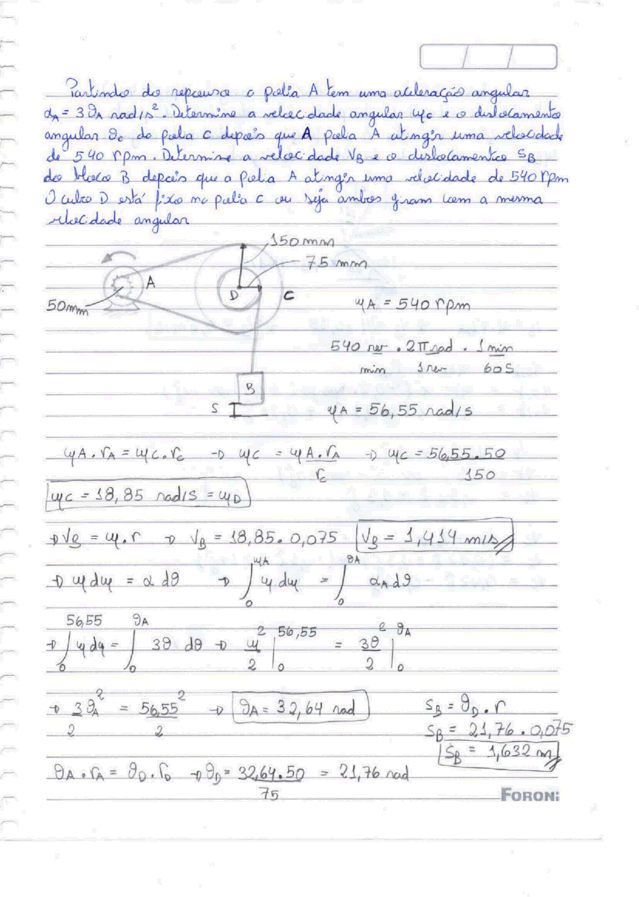 Partindo do repouso a polia A tem uma aceleração angular
αA = 3θA rad/s². Determine a velocidade angular ωc e o deslocamento
angular θc da polia C depois que A polia A atingir uma velocidade
de 540 rpm. Determine a velocidade VB e o deslocamento SB
do bloco B depois que a Polia A atingir uma velocidade de 540 rpm
O cubo D está fixo na polia C ou seja ambos giram com a mesma
velocidade angular
150mm
75 mm
A
50mm
D
C
B
S
ωA = 540 rpm
540 rev/min . 2π rad/1 rev . 1 min/60s
ωA = 56,55 rad/s
ωA . rA = ωC . rC → ωC = ωA . rA/rC → ωC = 56,55 . 50/150
ωC = 18,85 rad/s = ωD
→ VB = ω . r → VB = 18,85 . 0,075 VB = 1,414 m/s
→ ω dω = α dθ → ∫₀^ωA ω dω = ∫₀^θA αA dθ
→ ∫₀^56,55 ω dω = ∫₀^θA 3θ dθ → ω²/2 |₀^56,55 = 3θ²/2 |₀^θA
→ 3θA²/2 = 56,55²/2 → θA = 32,64 rad
SB = θD . r
SB = 21,76 . 0,075
SB = 1,632 m
θA . rA = θD . rD → θD = 32,64 . 50/75 = 21,76 rad
FORONI